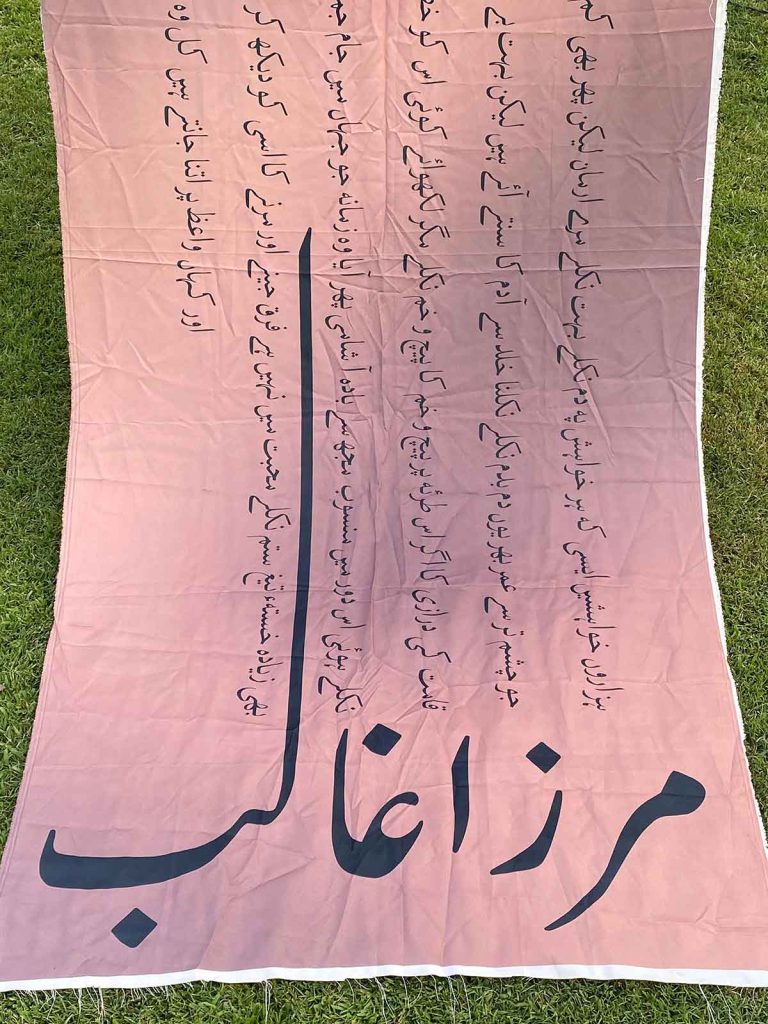 ہزاروں خواہشیں ایسی کہ ہر خواہش پہ دم نکلے بہت نکلے مرے ارمان لیکن پھر بھی کم
جو چشم تر سے عمر بھر یوں دم بدم نکلے نکلنا خلد سے آدم کا سنتے آئے ہیں لیکن بہت بے
قامت کی درازی کا اگر اس طرئہ پر پیچ و خم کا پیچ و خم نکلے مگر لکھوائے کوئی اس کو خط
نکلے ہوئی اس دور میں منسوب مجھ سے بادہ آشامی پھر آیا وہ زمانہ جو جہاں میں جام
بھی زیادہ خستہء تیغ ستم نکلے محبت میں نہیں ہے فرق جینے اور مرنے کا اسی کو دیکھ کر
اور کہاں واعظ پر اتنا جانتے ہیں کل وہ
مرزا غالب